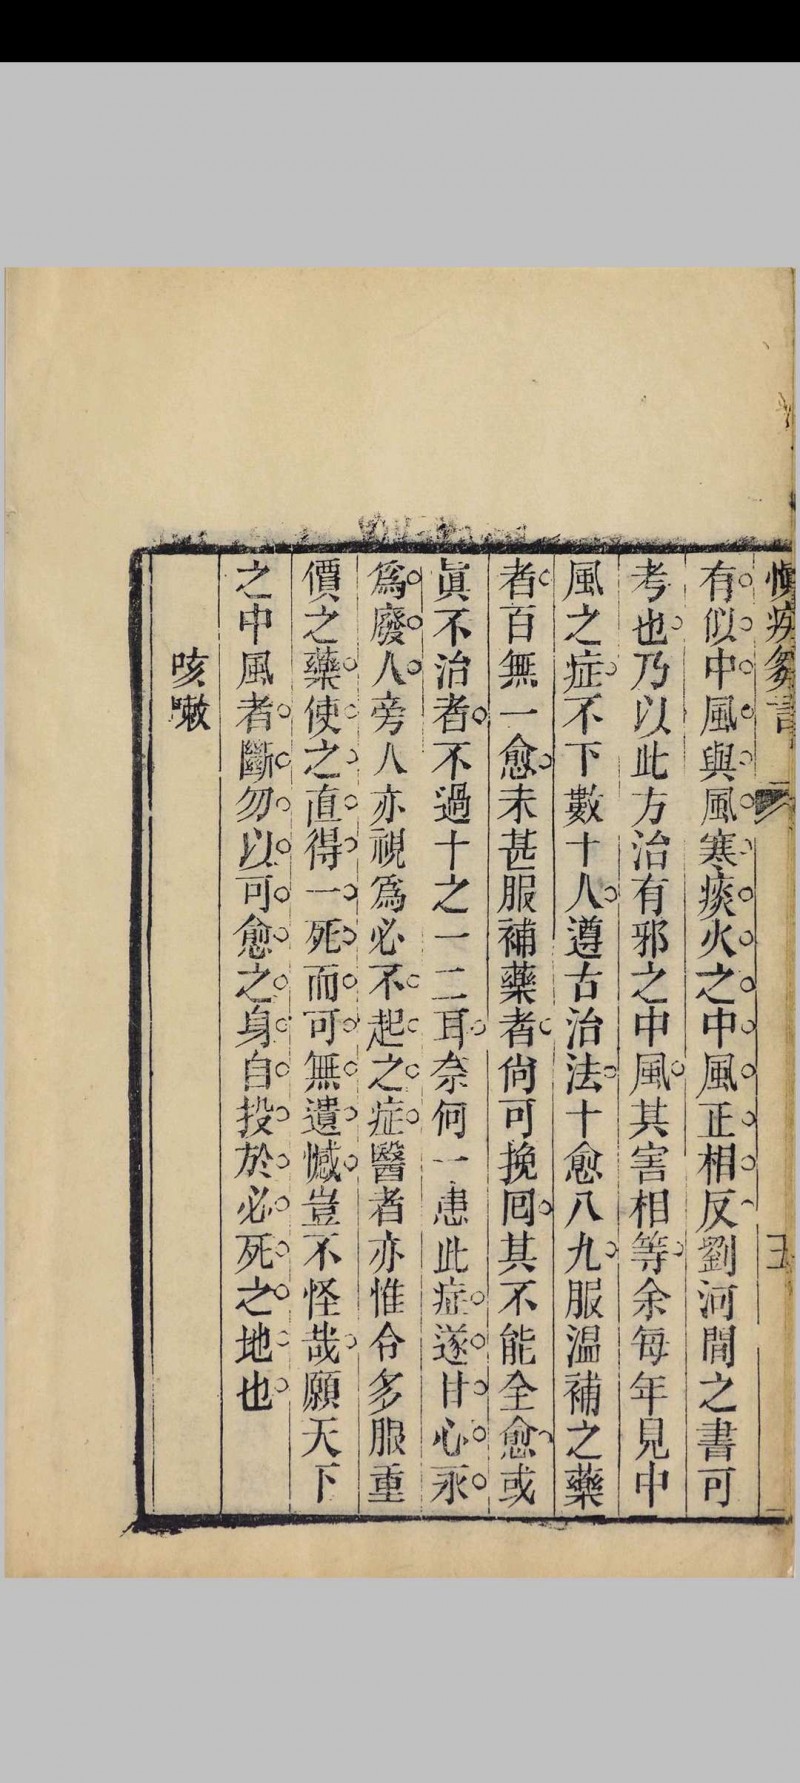 慎疾芻言
五
有似中風與風寒痰火之中風正相反劉河間之書可
考也乃以此方治有邪之中風其害相等余每年見中
風之症不下數十人遵古治法十愈八九服温補之藥
者百無一愈未甚服補藥者尚可挽囘其不能全愈或
眞不治者不過十之一二耳奈何一患此症遂甘心永
爲廢人旁人亦視爲必不起之症醫者亦惟令多服重
價之藥使之直得一死而可無遺憾豈不怪哉願天下
之中風者斷勿以可愈之身自投於必死之地也
咳嗽